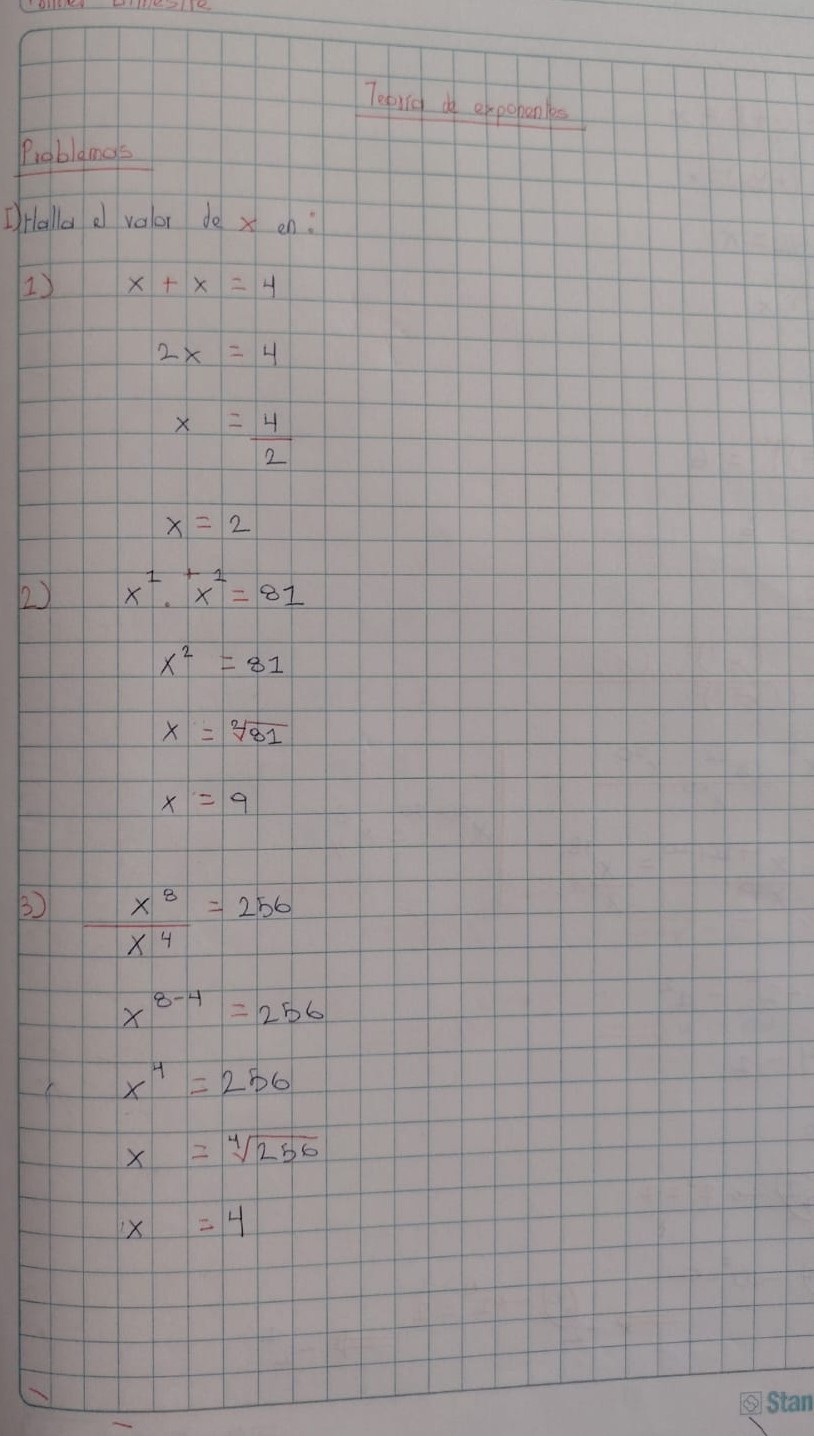 Bimestre
Teoría de exponentes
Problemas
I) Halla el valor de x en:
1) x + x = 4
2x = 4
x = 4/2
x = 2
2) x¹ . ⁺x¹ = 81
x² = 81
x = ²√81
x = 9
3) x⁸/x⁴ = 256
x⁸⁻⁴ = 256
x⁴ = 256
x = ⁴√256
x = 4
Stan